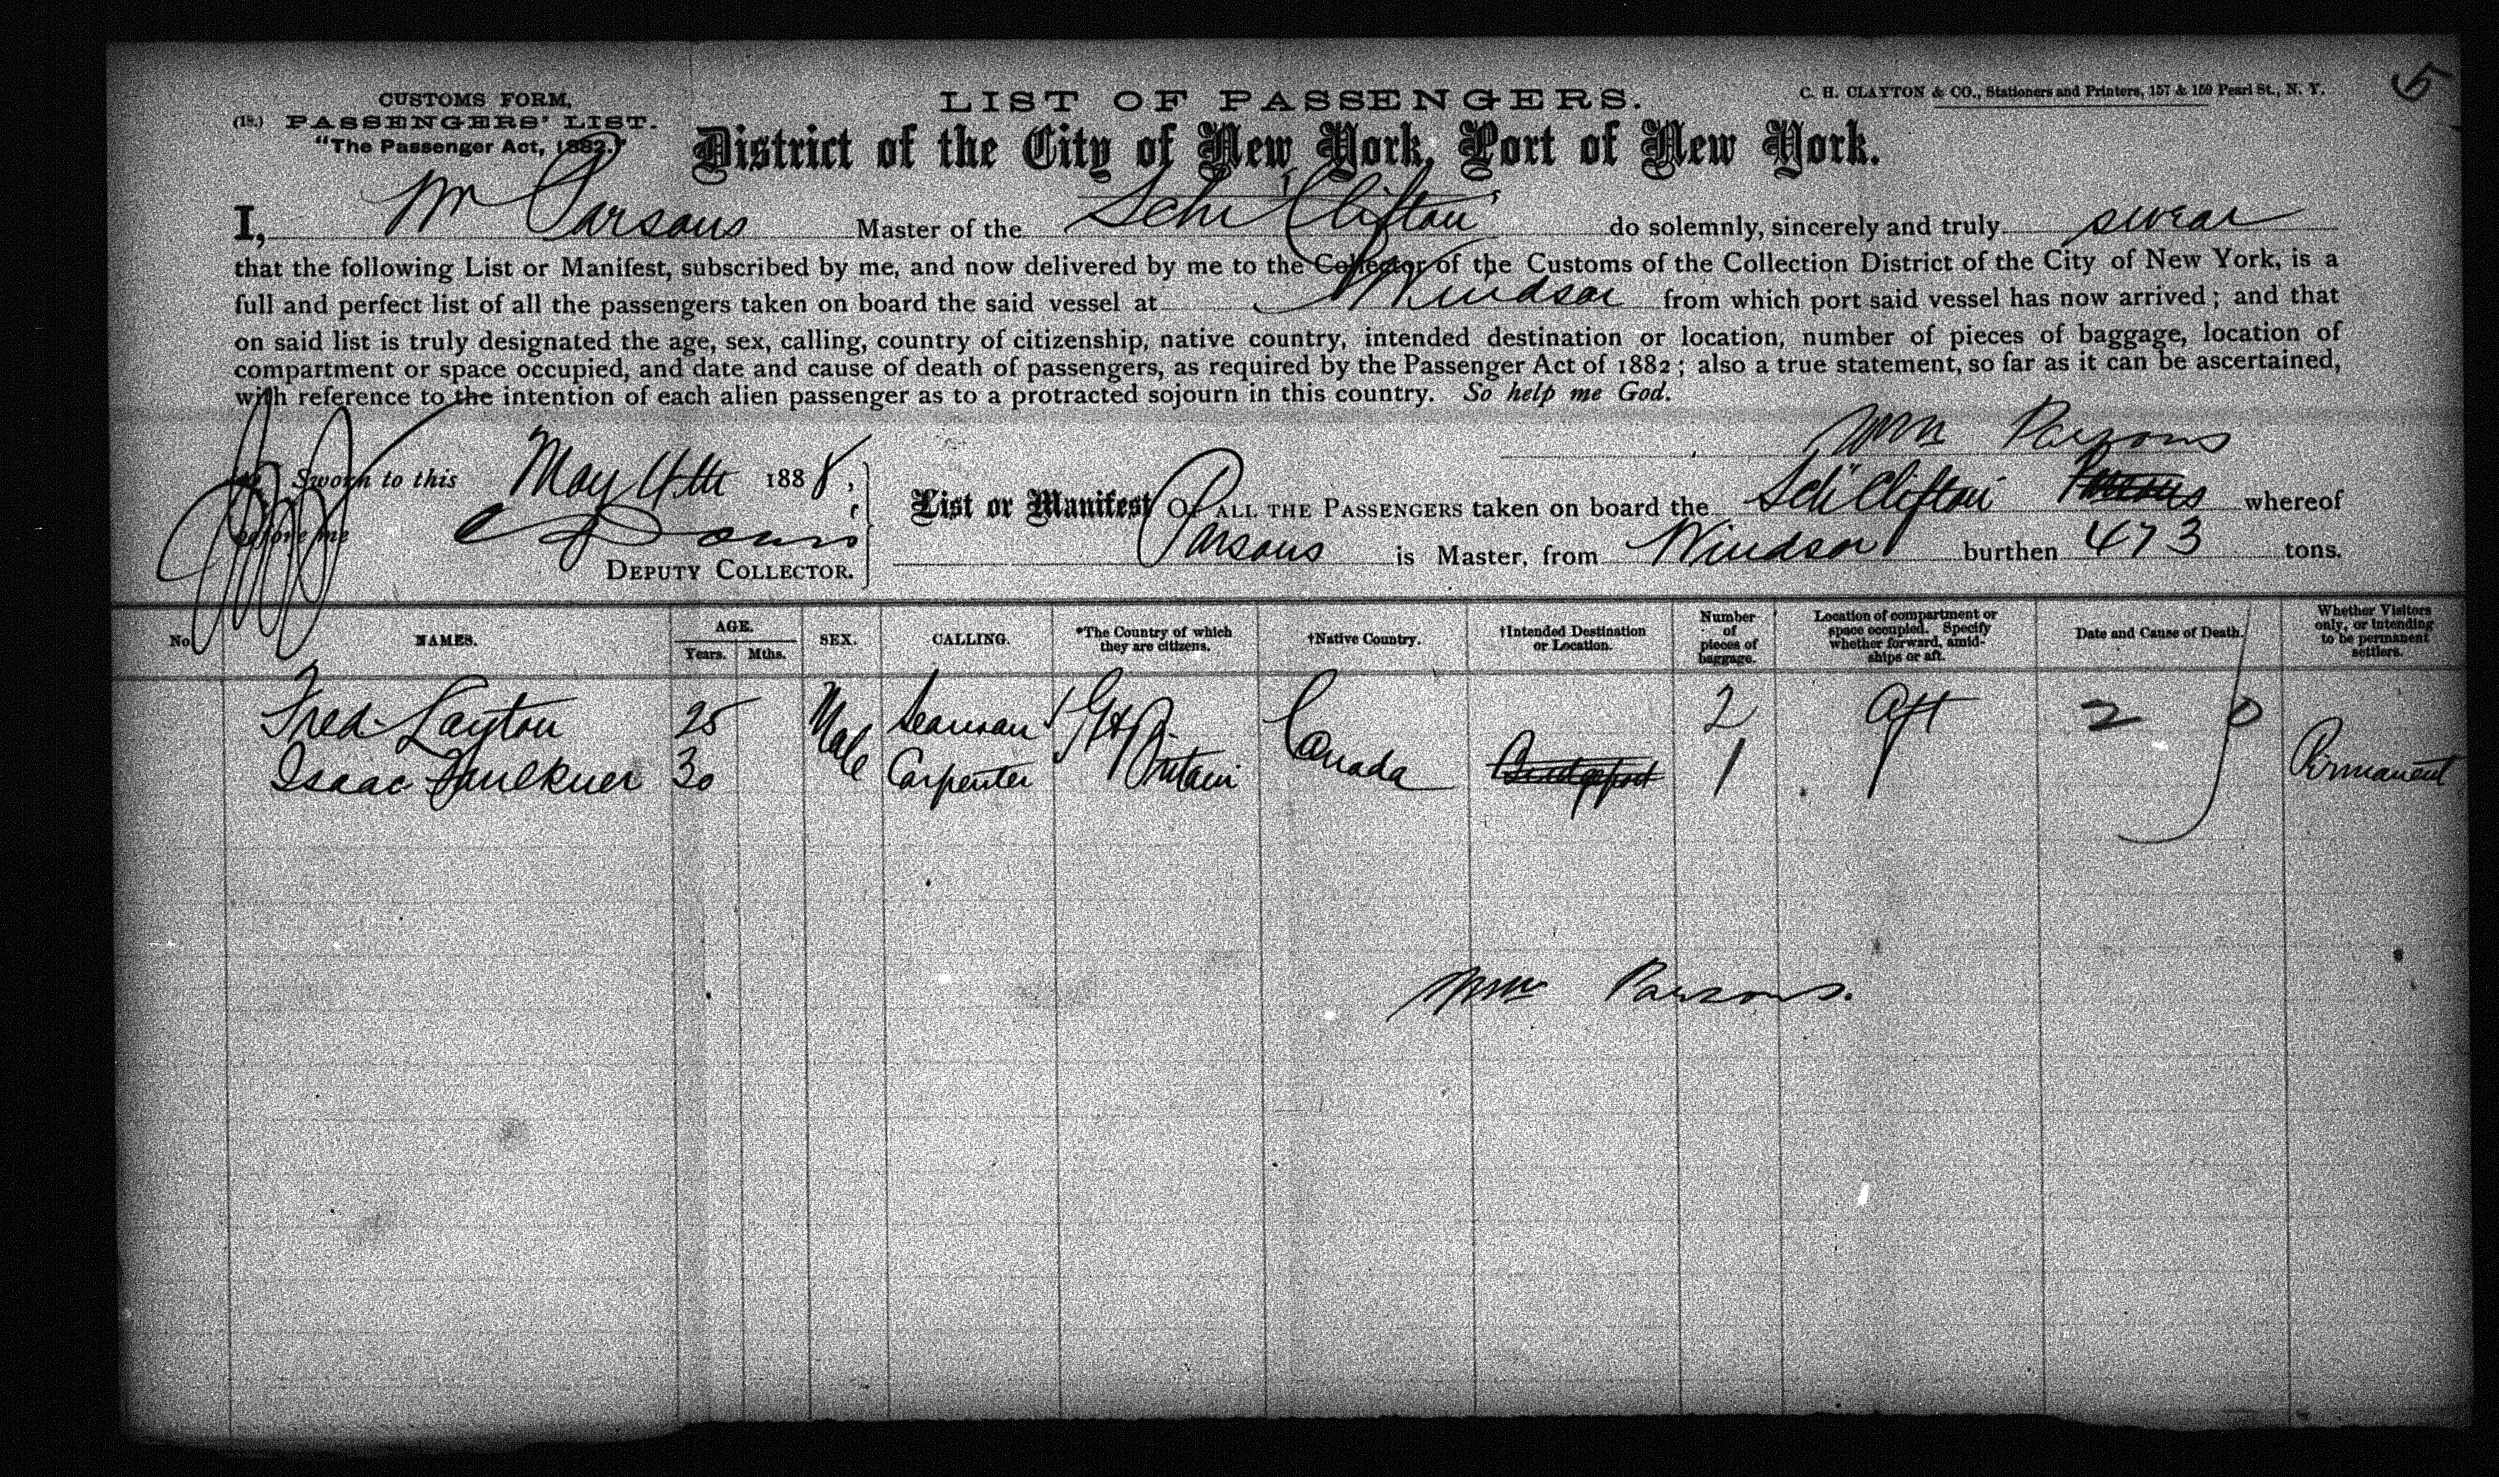 5
CUSTOMS FORM,
(18.) PASSENGERS' LIST.
"The Passenger Act, 1882."
LIST OF PASSENGERS.
C. H. CLAYTON & CO., Stationers and Printers, 157 & 159 Pearl St., N. Y.
District of the City of New York, Port of New York.
I, Wm Parsons Master of the Schr "Clifton" do solemnly, sincerely and truly swear
that the following List or Manifest, subscribed by me, and now delivered by me to the Collector of the Customs of the Collection District of the City of New York, is a
full and perfect list of all the passengers taken on board the said vessel at Windsor from which port said vessel has now arrived; and that
on said list is truly designated the age, sex, calling, country of citizenship, native country, intended destination or location, number of pieces of baggage, location of
compartment or space occupied, and date and cause of death of passengers, as required by the Passenger Act of 1882; also a true statement, so far as it can be ascertained,
with reference to the intention of each alien passenger as to a protracted sojourn in this country. So help me God.
Wm Parsons
Sworn to this May 4th 1888,
before me
DEPUTY COLLECTOR.
List or Manifest OF ALL THE PASSENGERS taken on board the Sch "Clifton" whereof
Parsons is Master, from Windsor burthen 473 tons.
No. NAMES. AGE. Years. Mths. SEX. CALLING. *The Country of which they are citizens. †Native Country. †Intended Destination or Location. Number of pieces of baggage. Location of compartment or space occupied. Specify whether forward, amidships or aft. Date and Cause of Death. Whether Visitors only, or intending to be permanent settlers.
Fred Layton 25 Male Seaman Gt Britain Canada 2 Aft 2 0 Permanent
Isaac Faulkner 30 Carpenter 1
Wm Parsons.